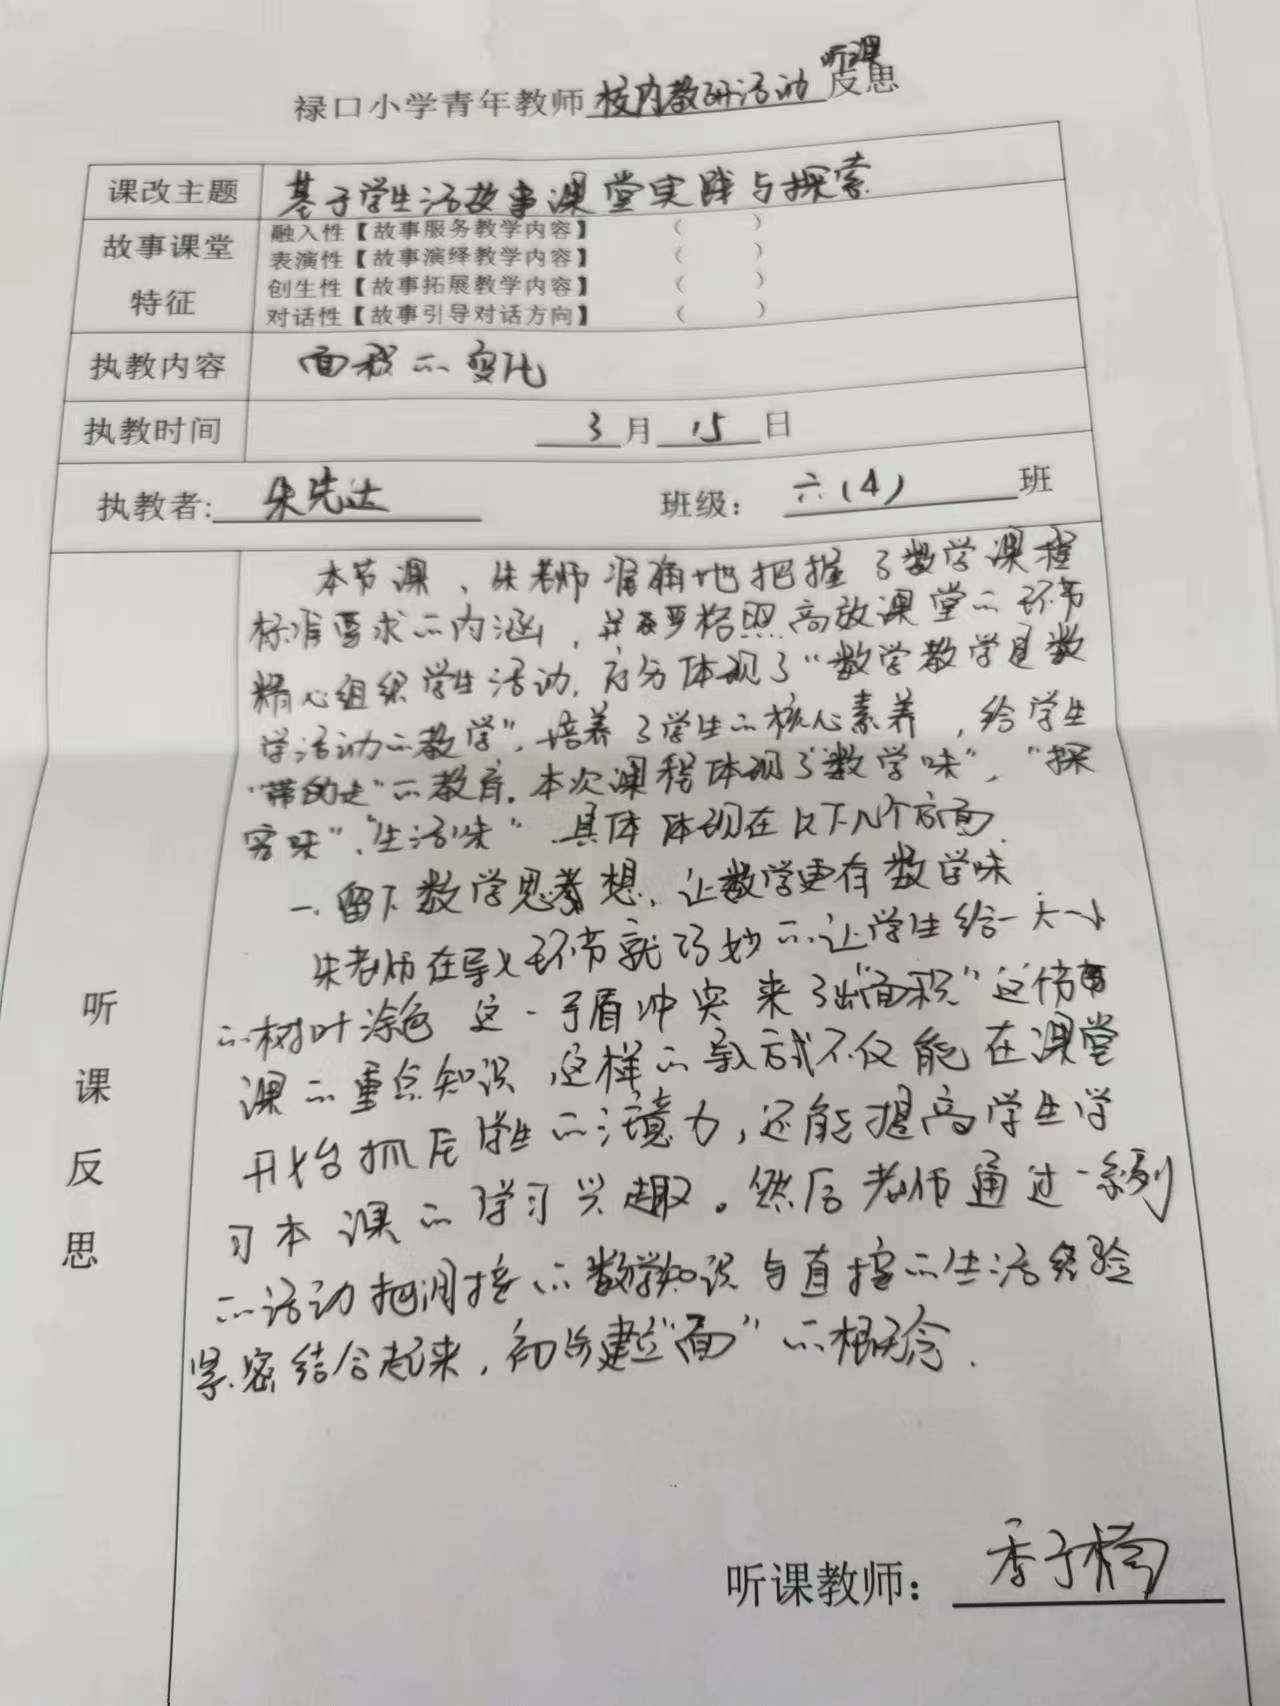 听课
禄口小学青年教师校内教研活动反思
课改主题 基于学生活故事课堂实践与探索
故事课堂特征
融入性【故事服务教学内容】 （ ）
表演性【故事演绎教学内容】 （ ）
创生性【故事拓展教学内容】 （ ）
对话性【故事引导对话方向】 （ ）
执教内容 面积的变化
执教时间 3月15日
执教者：朱先达 班级：六（4）班
听课反思
本节课、朱老师准确地把握了数学课程
标准要求的内涵，并严格照高效课堂的环节
精心组织学生活动，充分体现了“数学教学是数
学活动的教学”，培养了学生的核心素养，给学生
“带的走”的教育。本次课程体现了“数学味”，“探
究味”、“生活味”具体体现在以下几个方面.
一. 留下数学思想，让数学更有数学味
朱老师在导入环节就巧妙的让学生给一大一小
的树叶涂色 这一矛盾冲突来了出“面积”这
课的重点知识，这样的导入方式不仅能在课堂
开始抓住学生的注意力，还能提高学生学
习本课的学习兴趣。然后老师通过一系列
的活动把间接的数学知识与直接的生活经验
紧密结合起来，初步建立“面”的概念.
听课教师：季子楠